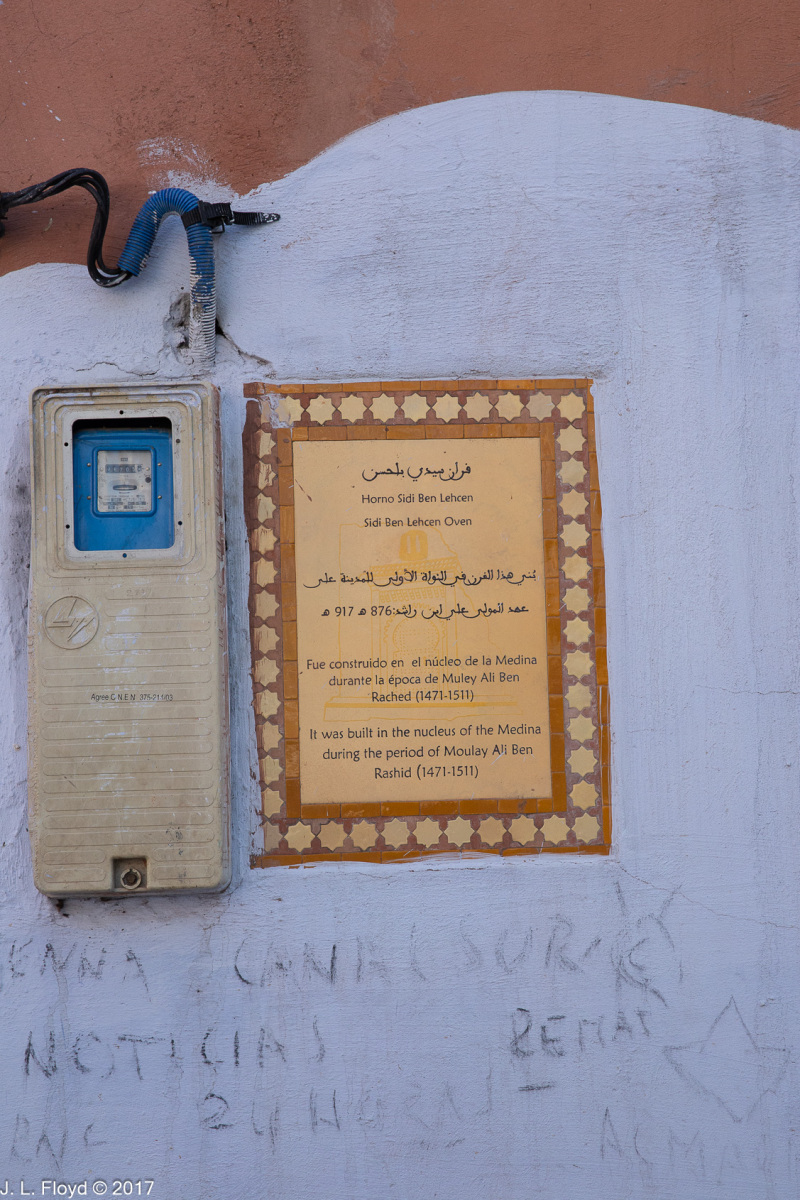 فران سيدي بلحسن
Horno Sidi Ben Lehcen
Sidi Ben Lehcen Oven
بُني هذا الفرن في النواة الأولى للمدينة على
عهد المولى علي ابن راشد:876 ھ 917 ھ
Fue construido en el núcleo de la Medina
durante la época de Muley Ali Ben
Rached (1471-1511)
It was built in the nucleus of the Medina
during the period of Moulay Ali Ben
Rashid (1471-1511)
NOTICIAS
24 HORAS
J. L. Floyd © 2017